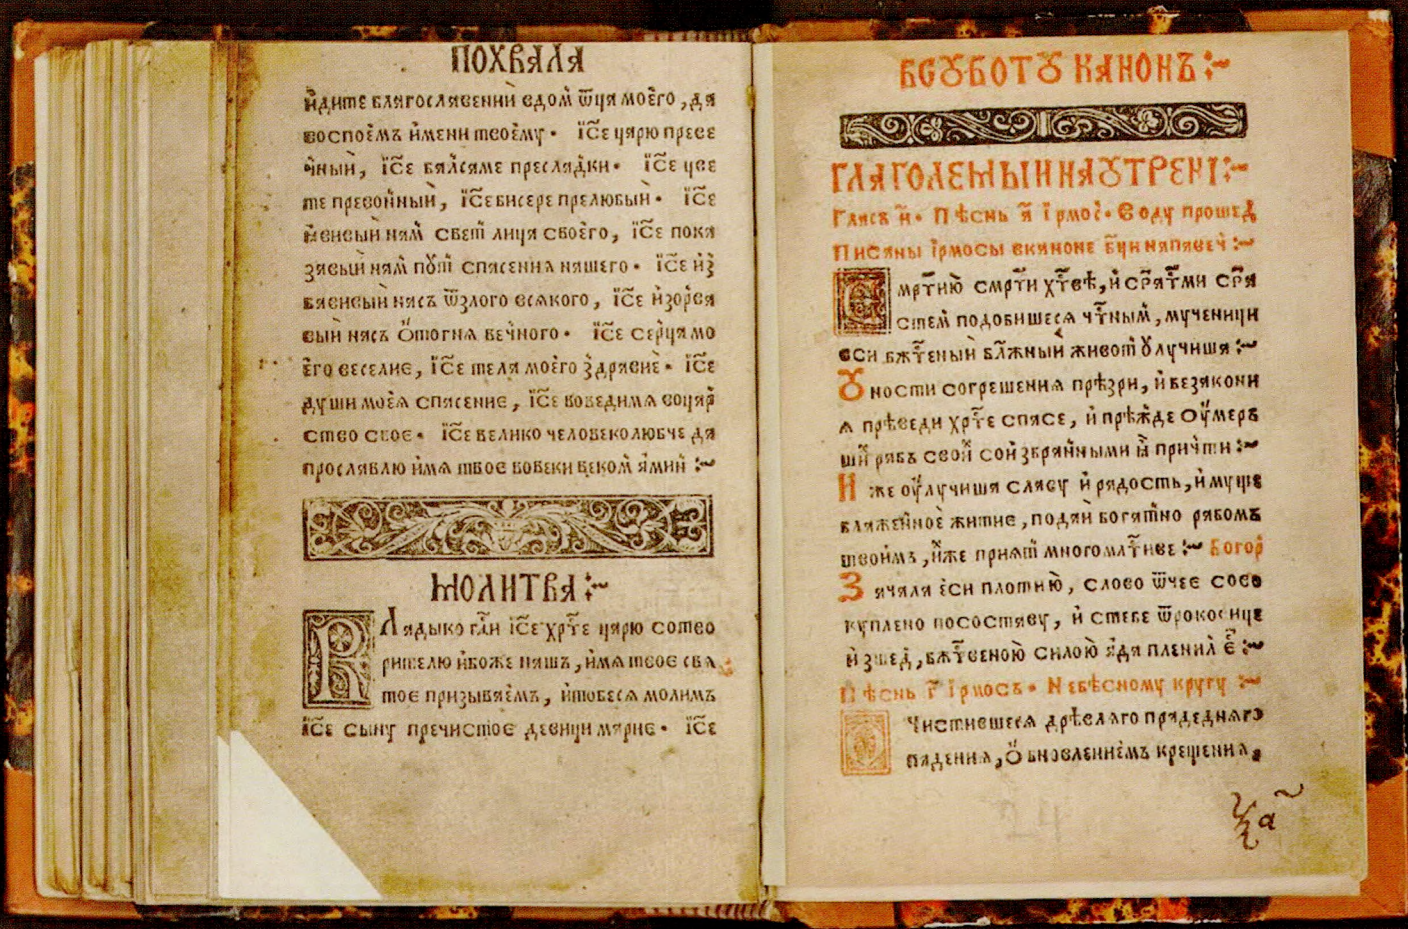 ПОХВАЛА
и҆дите благославениѝ едом̾ ѿца мое҆го, да
воспое҆мъ и҆мени твое҆му· і҆с҃е царю преве
чныи, і҆с҃е бал҆саме преслад҆ки· і҆с҃е цве
те превонныи̇, і҆с҃е бисере прелюбыи̇· і҆с҃е
нам̾ свет̾ лица свое҆го, і҆с҃е пока
завыи̇ нам̾ пꙋт̾ спасения нашего· і҆с҃е и҆з̾
бависыи̇ насъ ѿзлого всякого, і҆с҃е и҆зорва
выи̇ насъ ѻтогня вечного· і҆с҃е сер҆ца мо
е҆го веселие, і҆с҃е тела мое҆го з҆дравие̇· і҆с҃е
души мое҆я спасение, і҆с҃е воведимя воцар̾
ство свое· і҆с҃е велико человеколюбче да
прославлю и҆мя твое вовеки веком̾ а҆мин̾ :~
МОЛИТВА :~
Владыко гл҃и і҆с҃е хрт҃е царю сотво
рителю и҆боже нашъ, и҆мя твое свя
тое призывае҆мъ, и҆тобеся молимъ
і҆с҃е сыну пречистое девици марие· і҆с҃е
ВСꙊБОТꙊ КАНОНЪ :~
ГЛАГОЛЕМЫИ НАꙊТРЕНІ :~
Гласъ и҃· Пѣснь а҃ і҆рмос̾· Воду прошед̾
Писаны і҆рмосы вканоне б҃ци напавеч̾ :~
Смрт҃ию̀ смрт҃и хт҃вѣ, и҆ срт҃аст҃ми стра
стем̾ подобишеся чт҃ным̾, мученици
вси бжт҃веныи̇ блж҃ныи̇ живот̾ ꙋлучиша :~
Ꙋности согрешения прѣзри, и҆ безакони
я прѣведи хрт҃е спасе, и҆ прѣж҆де оу҆меръ
ши̾ рабъ свои̾ сои҆збран҆ными м̾ прич҆ти :~
И же оу҆лучиша славу и҆ радость, и҆ муще
блажен҆ное̇ житие, подаи̇ богат҆но рабомъ
твои҆мъ, и҆же прият̾ многомлт҃иве :~ Богор̾
Зачала е҆си плотию̀, слово ѿчее сово
куплено восоставу, и҆ стебе ѿрокосице
и҆зшед̾, бжт҃веною̀ силою̀ а҆да пленил̾ е҃ :~
Пѣснь г҃ і҆рмосъ· Небѣсному кругу :~
Ѡчистившееся дрѣвляго прадедняго
падения, ѻбновлением҆ъ крещения,
ча